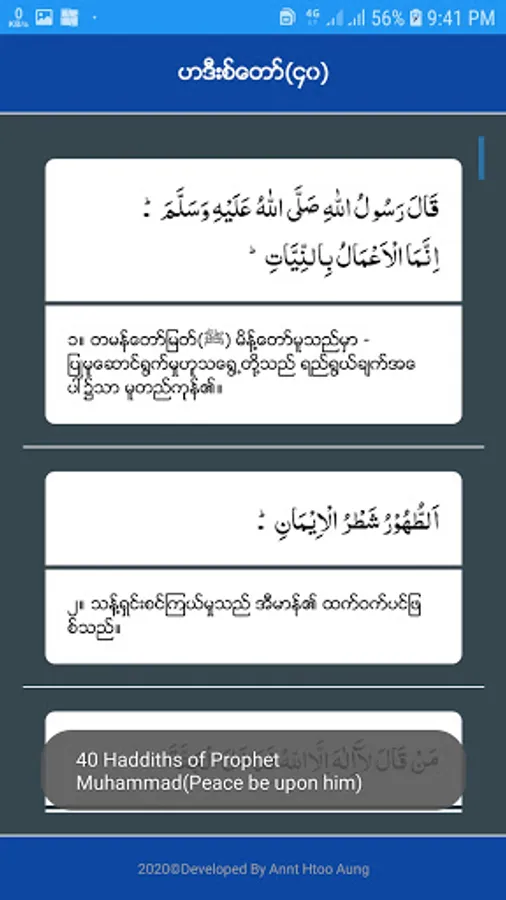 0
KB/s
4G
56%
9:41 PM
ဟဒီးစ်တော်(၄၀)
قَالَ رَسُولُ اللهِ صَلَّى اللهُ عَلَيْهِ وَسَلَّمَ :
اِنَّمَا الْاَعْمَالُ بِالنِّيَّاتِ
၁။ တမန်တော်မြတ်(ﷺ) မိန့်တော်မူသည်မှာ -
ပြုမှုဆောင်ရွက်မှုဟူသရွေ့တို့သည် ရည်ရွယ်ချက်အ​ပေါ်၌သာ မူတည်ကုန်၏။
اَلطُّهُوْرُ شَطْرُ الْاِيْمَانِ :
၂။ သန့်ရှင်းစင်ကြယ်မှုသည် အီမာန်၏ ထက်ဝက်ပင်ဖြ
စ်သည်။
مَنْ قَالَ لَآاِلٰهَ اِلَّا اللهُ
40 Haddiths of Prophet
Muhammad(Peace be upon him)
2020©Developed By Annt Htoo Aung